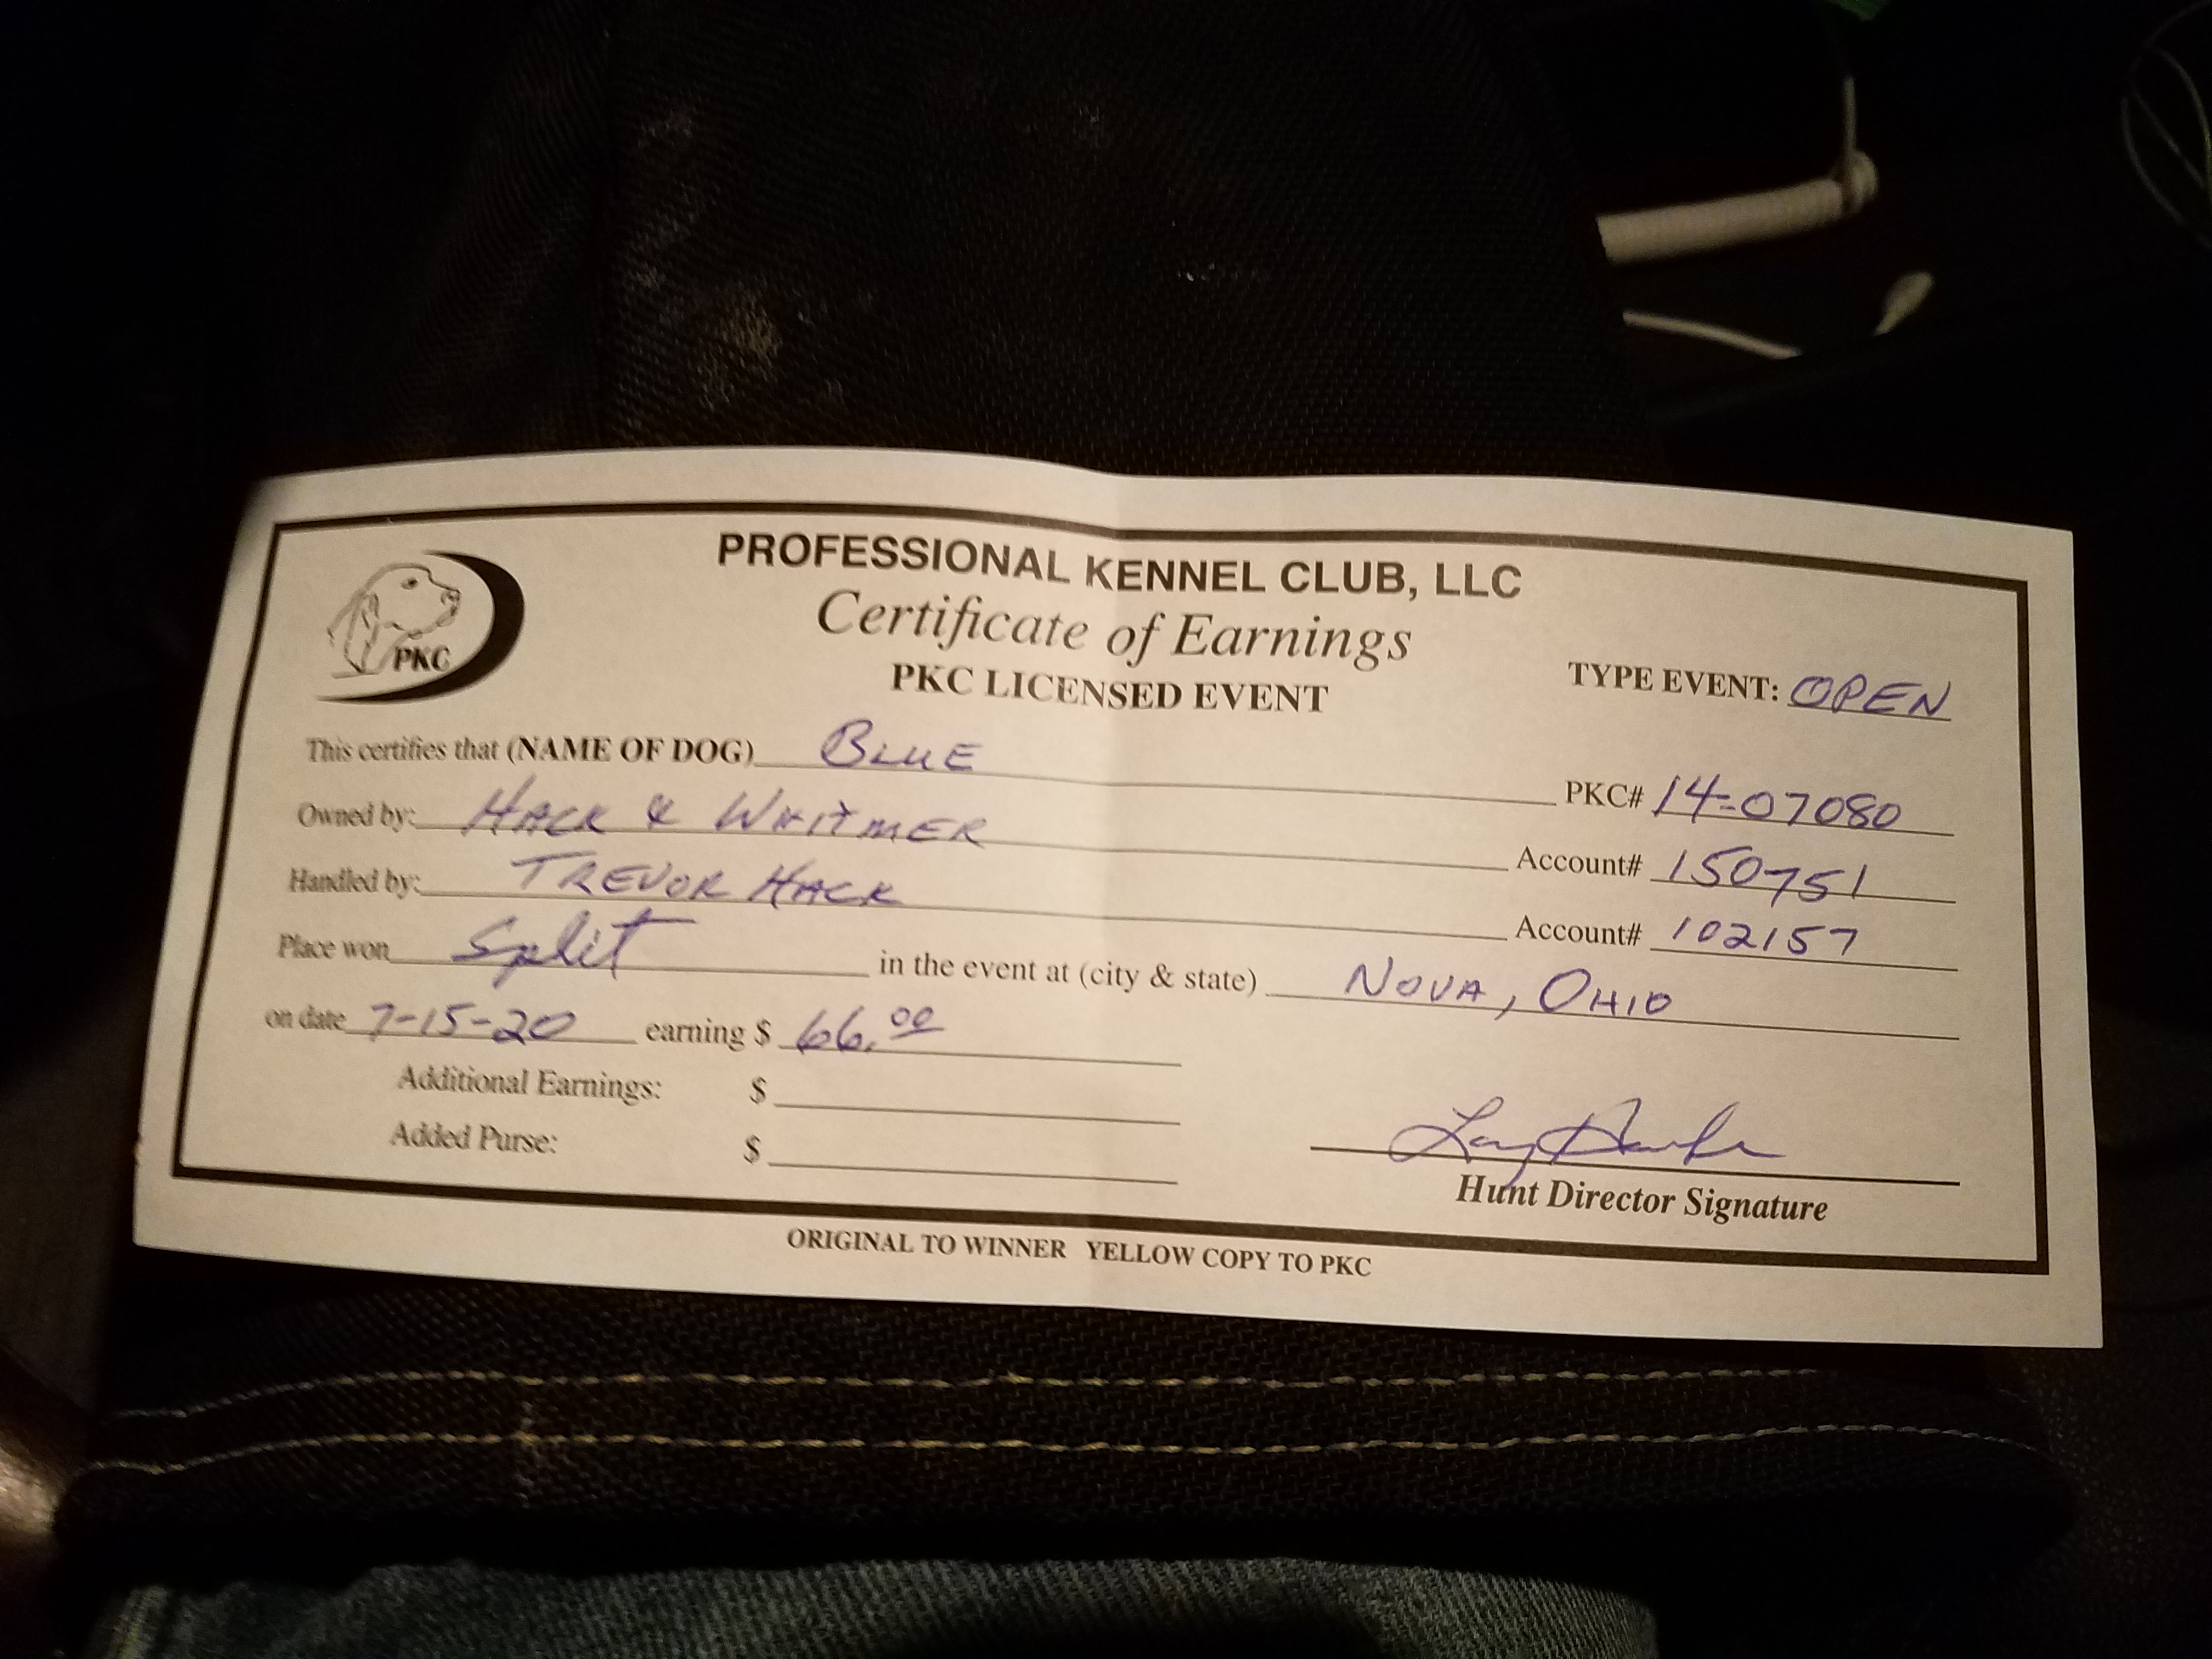 PROFESSIONAL KENNEL CLUB, LLC
Certificate of Earnings
PKC LICENSED EVENT
PKC
TYPE EVENT: OPEN
This certifies that (NAME OF DOG) BLUE PKC# 14-07080
Owned by: HACK & WHITMER Account# 150751
Handled by: TREVOR HACK Account# 102157
Place won Split in the event at (city & state) NOVA, OHIO
on date 7-15-20 earning $ 66.00
Additional Earnings: $
Added Purse: $
Hunt Director Signature
ORIGINAL TO WINNER YELLOW COPY TO PKC